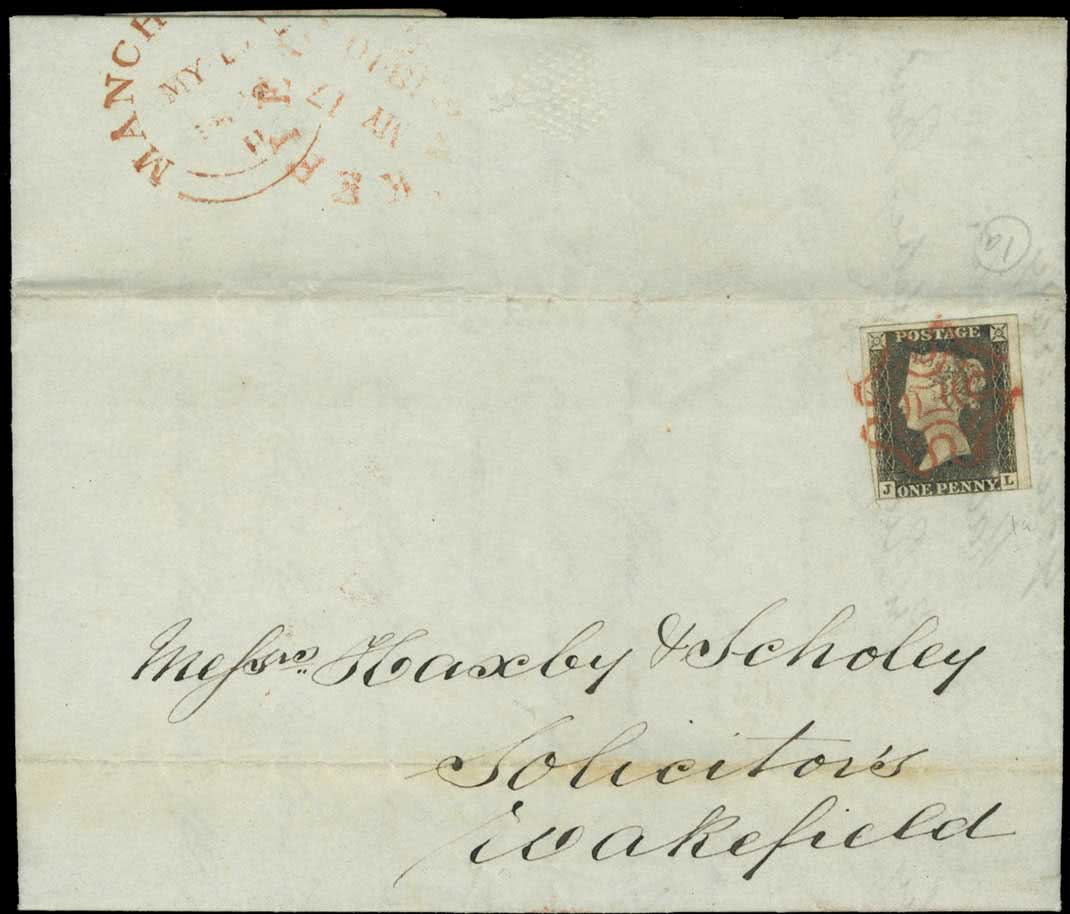 MANCH
MY
1a
POSTAGE
J ONE PENNY L
1a
Messrs. Haxby & Scholey
Solicitor's
Wakefield